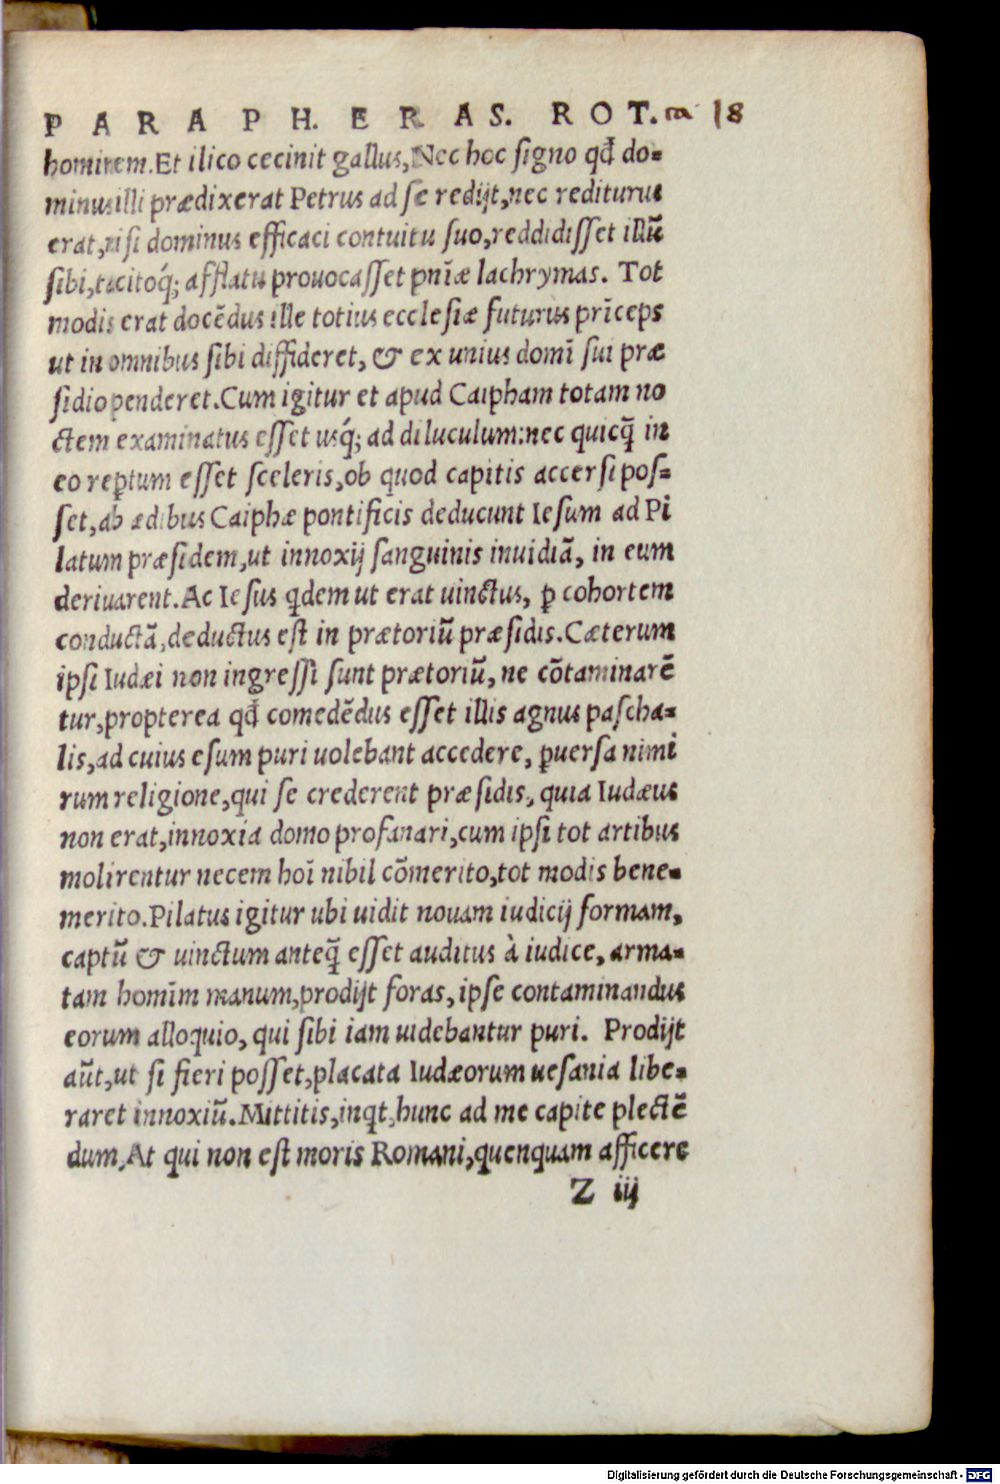 PARAPH. ERAS. ROT. ca 18
hominem. Et ilico cecinit gallus, Nec hoc signo qđ do-
minus illi prædixerat Petrus ad se redijt, nec rediturus
erat, nisi dominus efficaci contuitu suo, reddidisset illũ
sibi, tacitoq́; afflatu prouocasset pnĩæ lachrymas. Tot
modis erat docẽdus ille totius ecclesiæ futurus prĩceps
ut in omnibus sibi diffideret, & ex unius domĩ sui præ
sidio penderet. Cum igitur et apud Caipham totam no
ctem examinatus esset usq́; ad diluculum: nec quicq̃ in
eo reꝑtum esset sceleris, ob quod capitis accersi pos-
set, ab ædibus Caiphæ pontificis deducunt Iesum ad Pi
latum præsidem, ut innoxij sanguinis inuidiã, in eum
deriuarent. Ac Iesus q̃dem ut erat uinctus, ꝑ cohortem
conductã, deductus est in prætoriũ præsidis. Cæterum
ipsi Iudæi non ingressi sunt prætoriũ, ne cõtaminarẽ
tur, propterea qđ comedẽdus esset illis agnus pascha-
lis, ad cuius esum puri uolebant accedere, ꝑuersa nimi
rum religione, qui se crederent præsidis, quia Iudæus
non erat, innoxia domo profanari, cum ipsi tot artibus
molirentur necem hoĩ nihil cõmerito, tot modis bene-
merito. Pilatus igitur ubi uidit nouam iudicij formam,
captũ & uinctum anteq̃ esset auditus à iudice, arma-
tam homĩm manum, prodijt foras, ipse contaminandus
eorum alloquio, qui sibi iam uidebantur puri. Prodijt
aũt, ut si fieri posset, placata Iudæorum uesania libe-
raret innoxiũ. Mittitis, inqt, hunc ad me capite plectẽ
dum, At qui non est moris Romani, quenquam afficere
Z iij
Digitalisierung gefördert durch die Deutsche Forschungsgemeinschaft - DFG